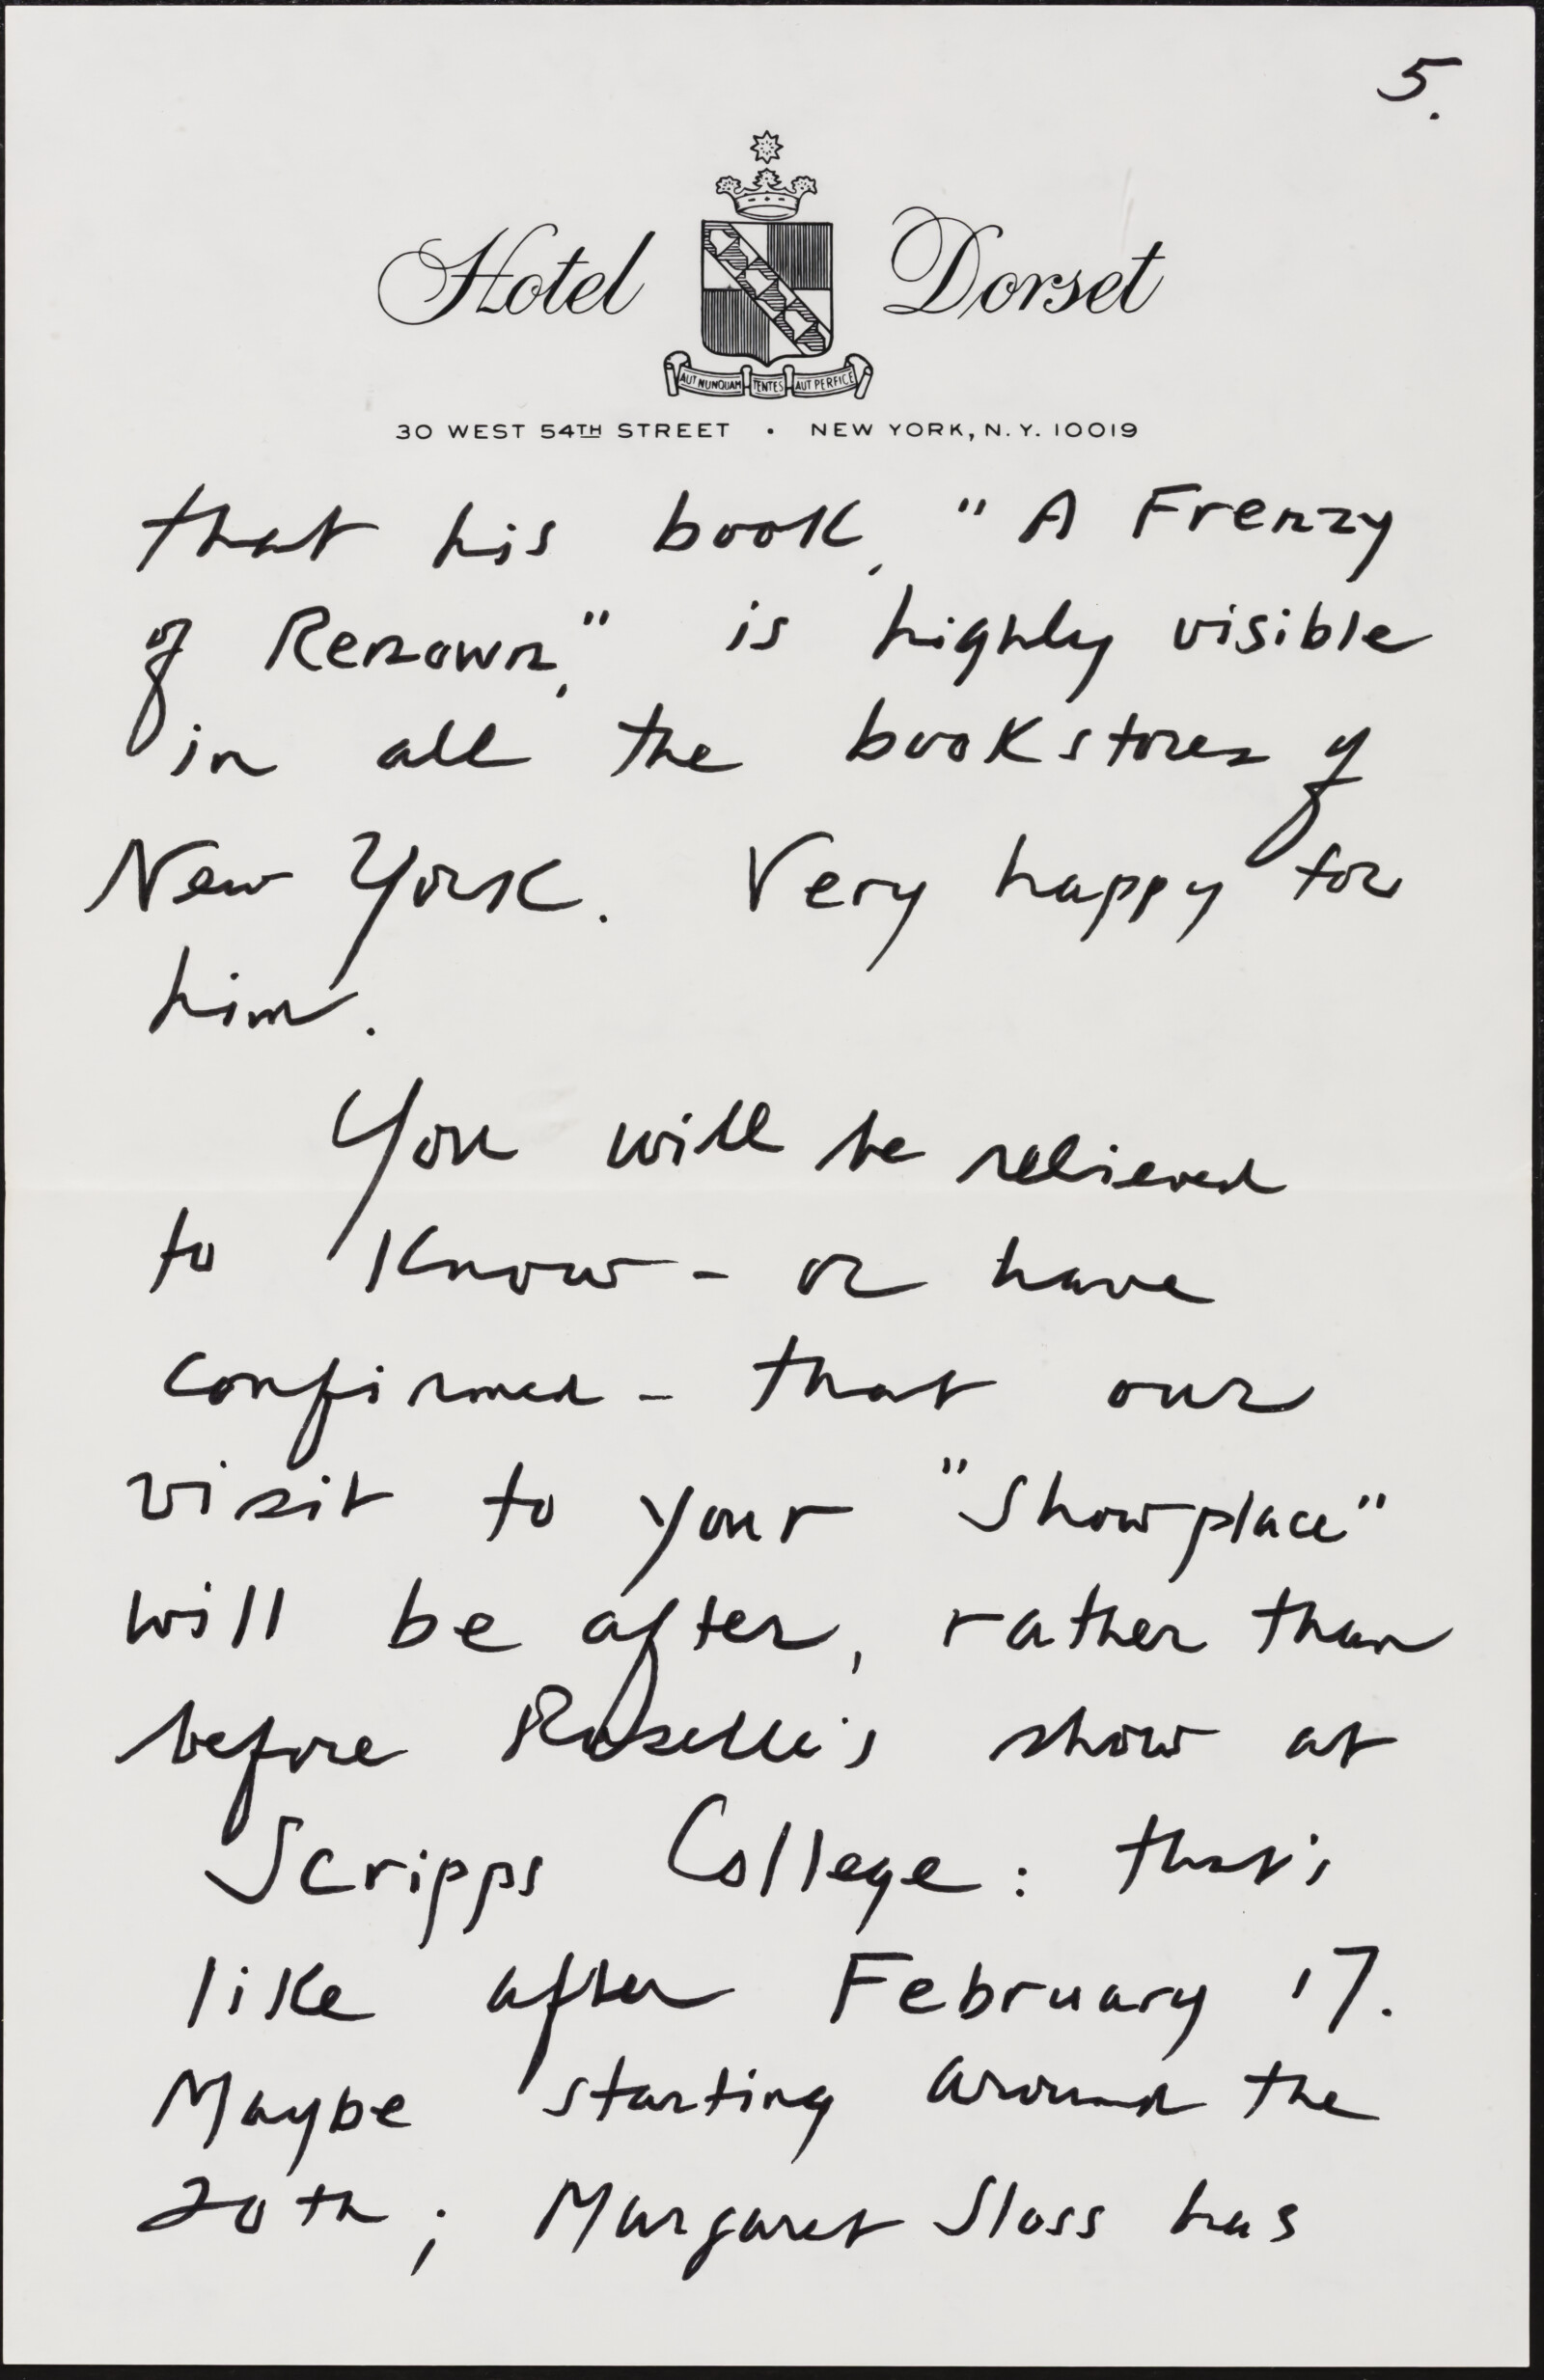 5.
Hotel Dorset
AUT NUNQUAM TENTES AUT PERFICE
30 WEST 54TH STREET • NEW YORK, N.Y. 10019
that his book, "A Frenzy
of Renown," is highly visible
in all the bookstores of
New York. Very happy for
him.
You will be relieved
to know - or have
confirmed - that our
visit to your "Showplace"
will be after, rather than
before Roselle's show at
Scripps College: that's
like after February 17.
Maybe starting around the
20th; Margaret Sloss has